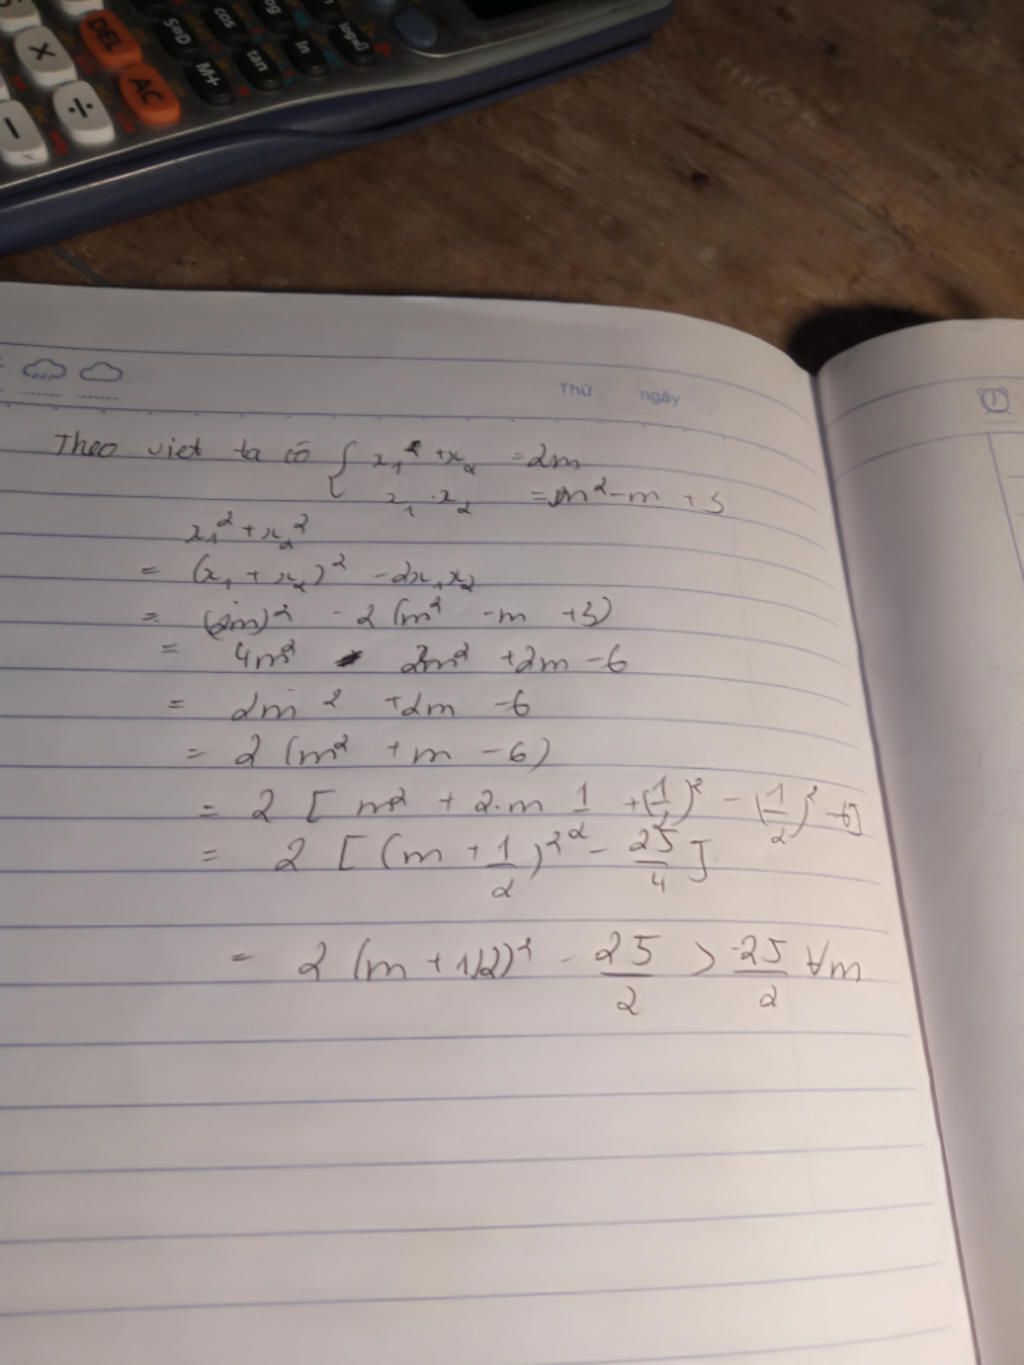 DEL
AC
S⇔D
M+
cos
tan
ln
×
÷
−
Thứ ngày
Theo viet ta có { x₁² + x₂ = 2m
x₁ . x₂ = m² - m + 3
x₁² + x₂²
= (x₁ + x₂)² - 2x₁x₂
= (2m)² - 2(m² - m + 3)
= 4m² - 2m² + 2m - 6
= 2m² + 2m - 6
= 2(m² + m - 6)
= 2[m² + 2.m 1/2 + (1/2)² - (1/2)² - 6]
= 2[(m + 1/2)² - 25/4]
= 2(m + 1/2)² - 25/2 > -25/2 ∀m